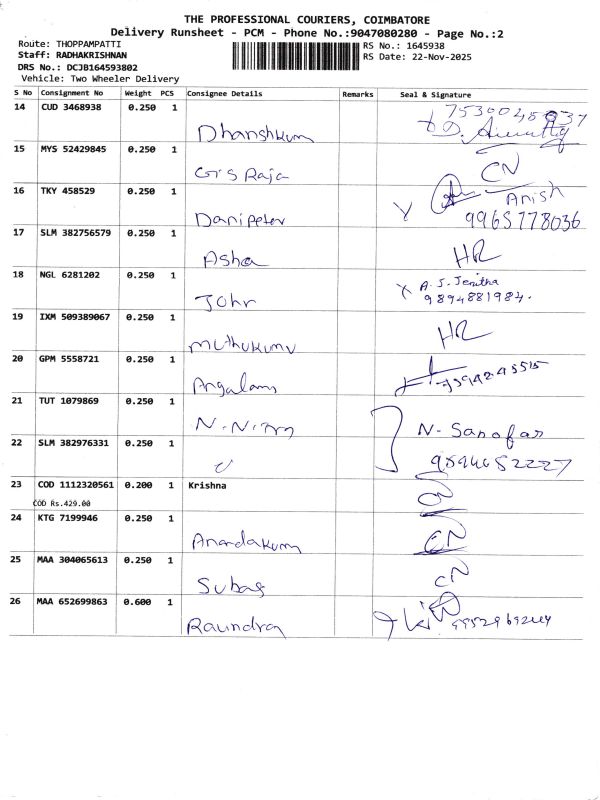 THE PROFESSIONAL COURIERS, COIMBATORE
Delivery Runsheet - PCM - Phone No.:9047080280 - Page No.:2
Route: THOPPAMPATTI
Staff: RADHAKRISHNAN
DRS No.: DCJB164593802
Vehicle: Two Wheeler Delivery
RS No.: 1645938
RS Date: 22-Nov-2025
S No Consignment No Weight PCS Consignee Details Remarks Seal & Signature
14 CUD 3468938 0.250 1
Dhanshkum
15 MYS 52429845 0.250 1
G.S Raja CN
16 TKY 458529 0.250 1
Danipeter Anish
9965778036
17 SLM 382756579 0.250 1
Asha HR
18 NGL 6281202 0.250 1
John A. J. Jenitha
9894881984.
19 IXM 509389067 0.250 1
Muthukumu HR
20 GPM 5558721 0.250 1
Angalam
21 TUT 1079869 0.250 1
N. Sanofar
22 SLM 382976331 0.250 1
9894652227
23 COD 1112320561 0.200 1 Krishna
COD Rs.429.00 CN
24 KTG 7199946 0.250 1
Anandakum CN
25 MAA 304065613 0.250 1
Subas CN
26 MAA 652699863 0.600 1
Raundran